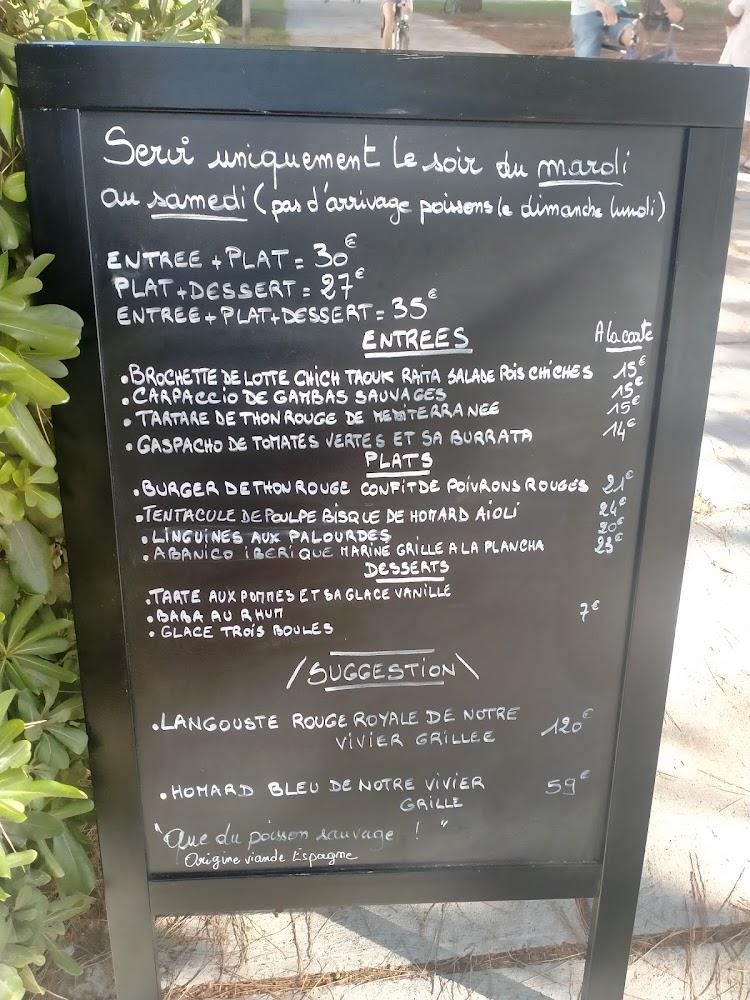 Servi uniquement le soir du mardi
au samedi (pas d'arrivage poissons le dimanche lundi)
ENTREE + PLAT = 30€
PLAT + DESSERT = 27€
ENTREE + PLAT + DESSERT = 35€
ENTREES A la carte
• BROCHETTE DE LOTTE CHICH TAOUK RAITA SALADE POIS CHICHES 15€
• CARPACCIO DE GAMBAS SAUVAGES 15€
• TARTARE DE THON ROUGE DE MEDITERRANEE 15€
• GASPACHO DE TOMATES VERTES ET SA BURRATA 14€
PLATS
• BURGER DE THON ROUGE CONFIT DE POIVRONS ROUGES 21€
• TENTACULE DE POULPE BISQUE DE HOMARD AIOLI 24€
• LINGUINES AUX PALOURDES 20€
• ABANICO IBERIQUE MARINE GRILLE A LA PLANCHA 23€
DESSERTS
• TARTE AUX POMMES ET SA GLACE VANILLE
• BABA AU RHUM 7€
• GLACE TROIS BOULES
/SUGGESTION\
• LANGOUSTE ROUGE ROYALE DE NOTRE
VIVIER GRILLEE 120€
• HOMARD BLEU DE NOTRE VIVIER 59€
GRILLE
"Que du poisson sauvage ! "
Origine viande Espagne